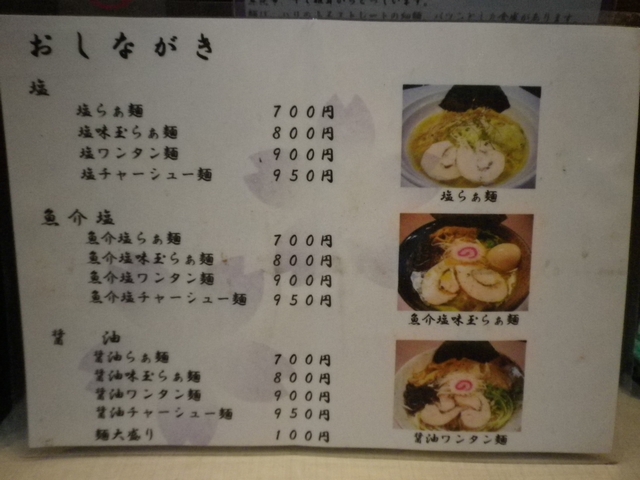 おしながき
塩
塩らぁ麺 700円
塩味玉らぁ麺 800円
塩ワンタン麺 900円
塩チャーシュー麺 950円
塩らぁ麺
魚介塩
魚介塩らぁ麺 700円
魚介塩味玉らぁ麺 800円
魚介塩ワンタン麺 900円
魚介塩チャーシュー麺 950円
魚介塩味玉らぁ麺
醤油
醤油らぁ麺 700円
醤油味玉らぁ麺 800円
醤油ワンタン麺 900円
醤油チャーシュー麺 950円
麺大盛り 100円
醤油ワンタン麺